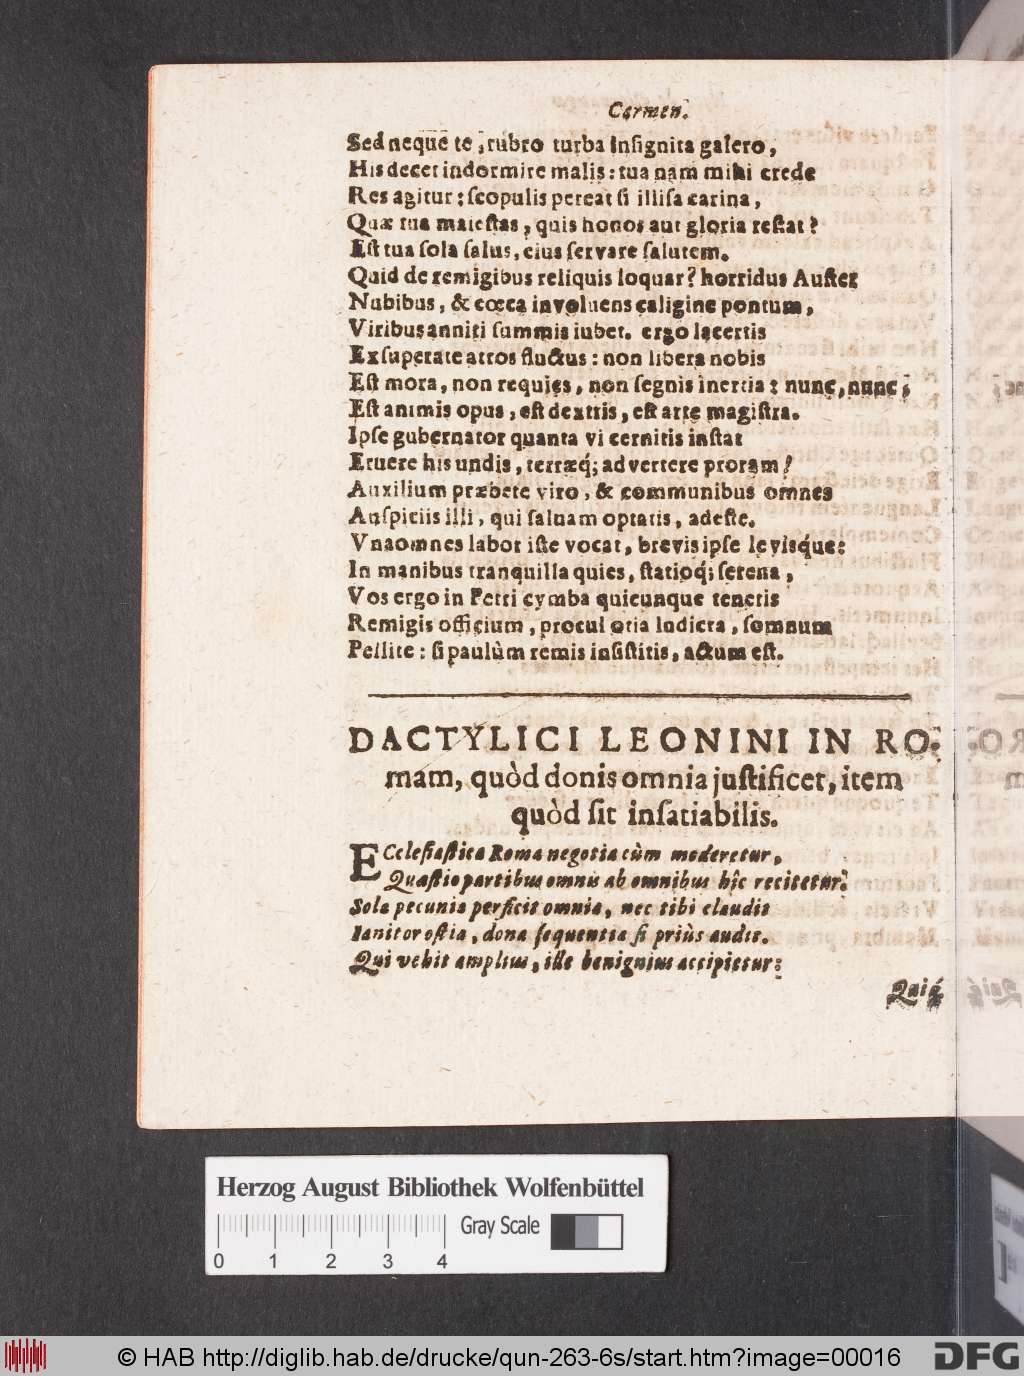 Carmen.
Sed neque te, rubro turba insignita galero,
His decet indormire malis: tua nam mihi crede
Res agitur: scopulis pereat si illisa carina,
Quæ tua maiestas, quis honos aut gloria restat?
Est tua sola salus, eius servare salutem.
Quid de remigibus reliquis loquar? horridus Auster
Nubibus, & cœca involuens caligine pontum,
Viribus anniti summis iubet. ergo lacertis
Exsuperate atros fluctus: non libera nobis
Est mora, non requies, non segnis inertia: nunc, nunc,
Est animis opus, est dextris, est arte magistra.
Ipse gubernator quanta vi cernitis instat
Eruere his undis, terræq́; advertere proram!
Auxilium præbete viro, & communibus omnes
Auspiciis illi, qui saluam optatis, adeste.
Vna omnes labor iste vocat, brevis ipse levisq́ue:
In manibus tranquilla quies, statioq́; serena,
Vos ergo in Petri cymba quicunque tenetis
Remigis officium, procul otia ludicra, somnum
Pellite: si paulùm remis insistitis, actum est.
DACTYLICI LEONINI IN RO-
mam, quòd donis omnia justificet, item
quòd sit insatiabilis.
ECclesiastica Roma negotia cùm moderetur,
Quæstio partibus omnis ab omnibus hîc recitetur.
Sola pecunia perficit omnia, nec tibi claudit
Ianitor ostia, dona sequentia si priùs audit.
Qui vehit amplius, ille benignius accipietur:
Quiq́
Herzog August Bibliothek Wolfenbüttel
Gray Scale
0 1 2 3 4
© HAB http://diglib.hab.de/drucke/qun-263-6s/start.htm?image=00016
DFG